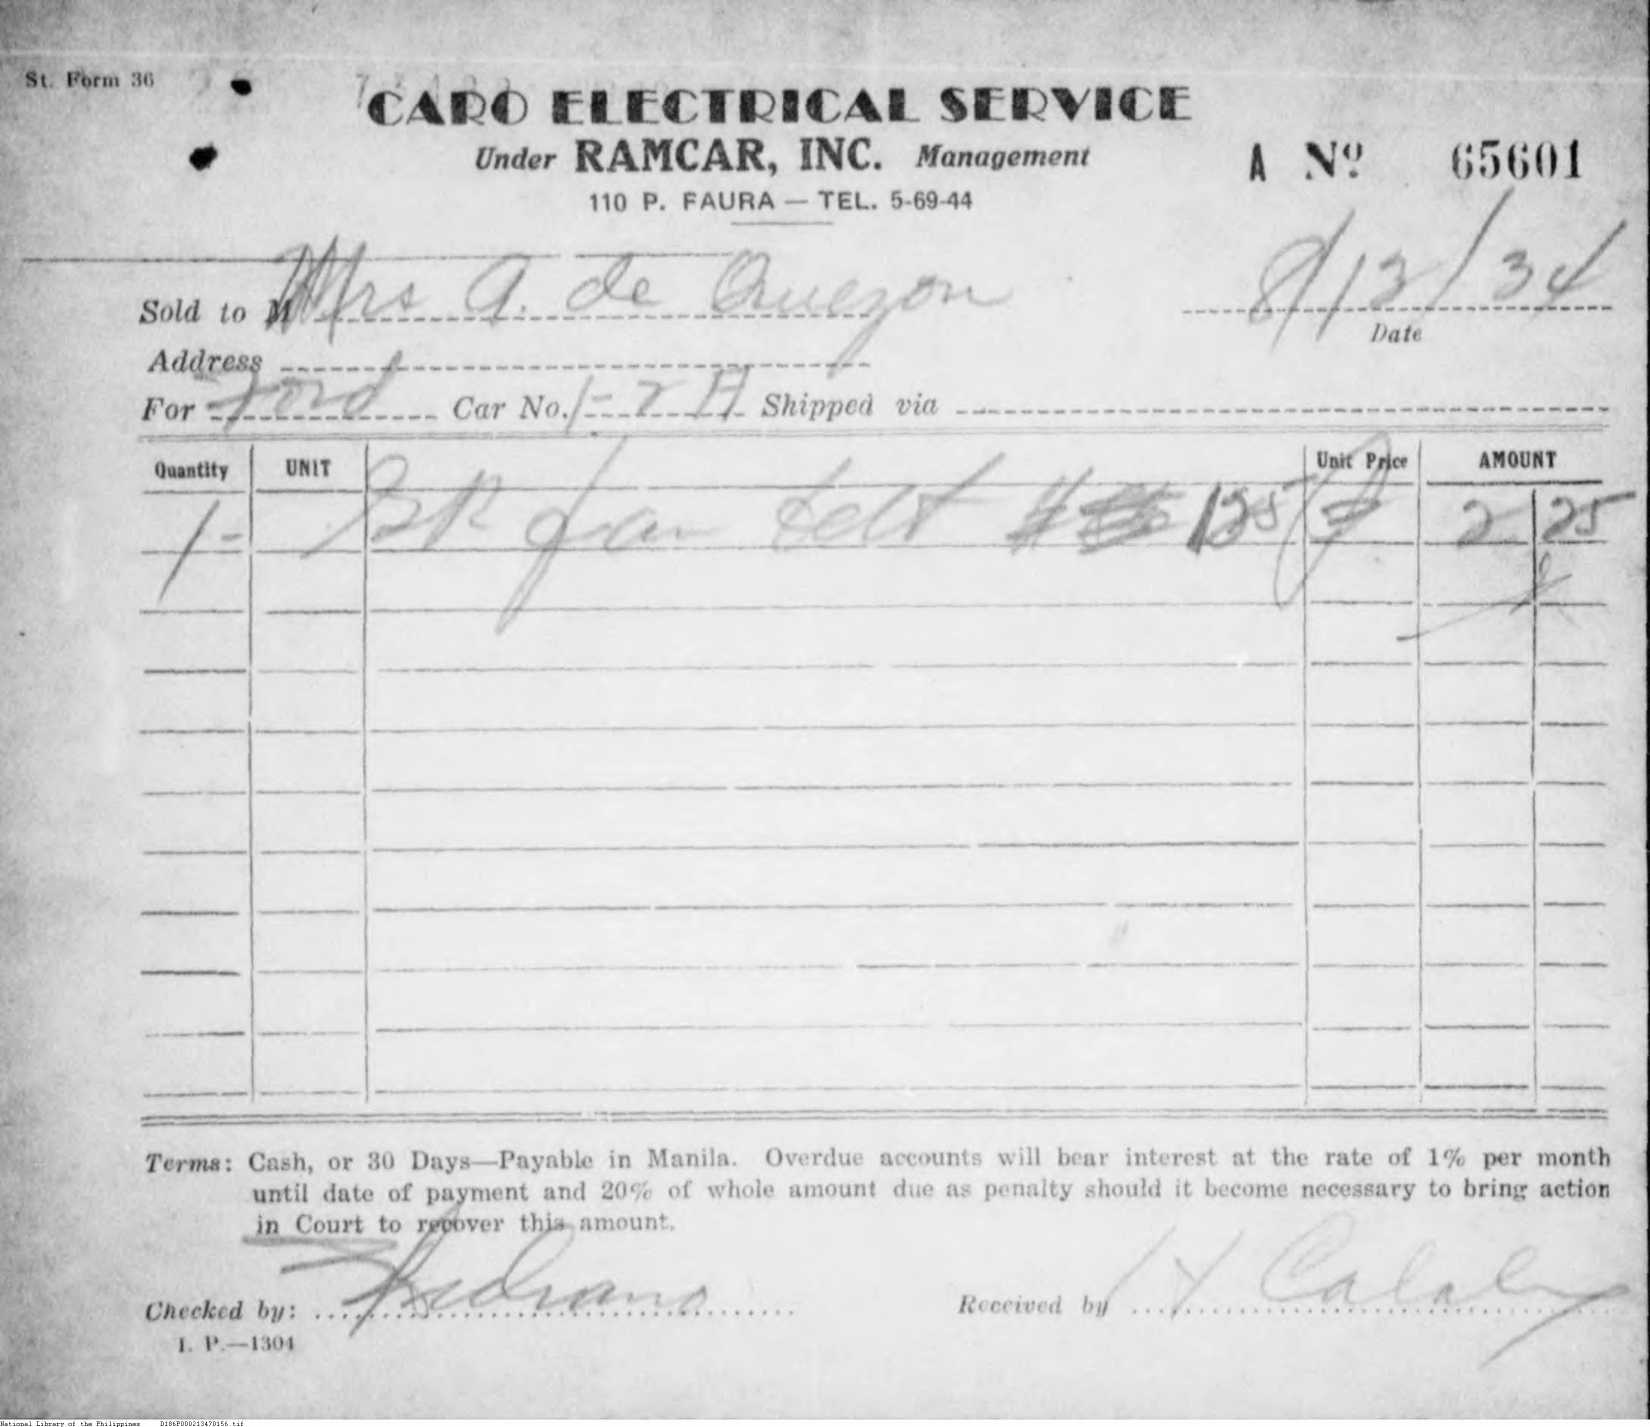 St. Form 36
CARO ELECTRICAL SERVICE
Under RAMCAR, INC. Management
A Nº 65601
110 P. FAURA — TEL. 5-69-44
Sold to M Mrs A. de Quezon
8/13/34
Date
Address
For Ford Car No. 1-2 A Shipped via
Quantity UNIT Unit Price AMOUNT
1- fan belt 125 2 25
Terms: Cash, or 30 Days—Payable in Manila. Overdue accounts will bear interest at the rate of 1% per month
until date of payment and 20% of whole amount due as penalty should it become necessary to bring action
in Court to recover this amount.
Checked by: Medrano
Received by H
I. P.—1304
National Library of the Philippines D186P000213470156.tif